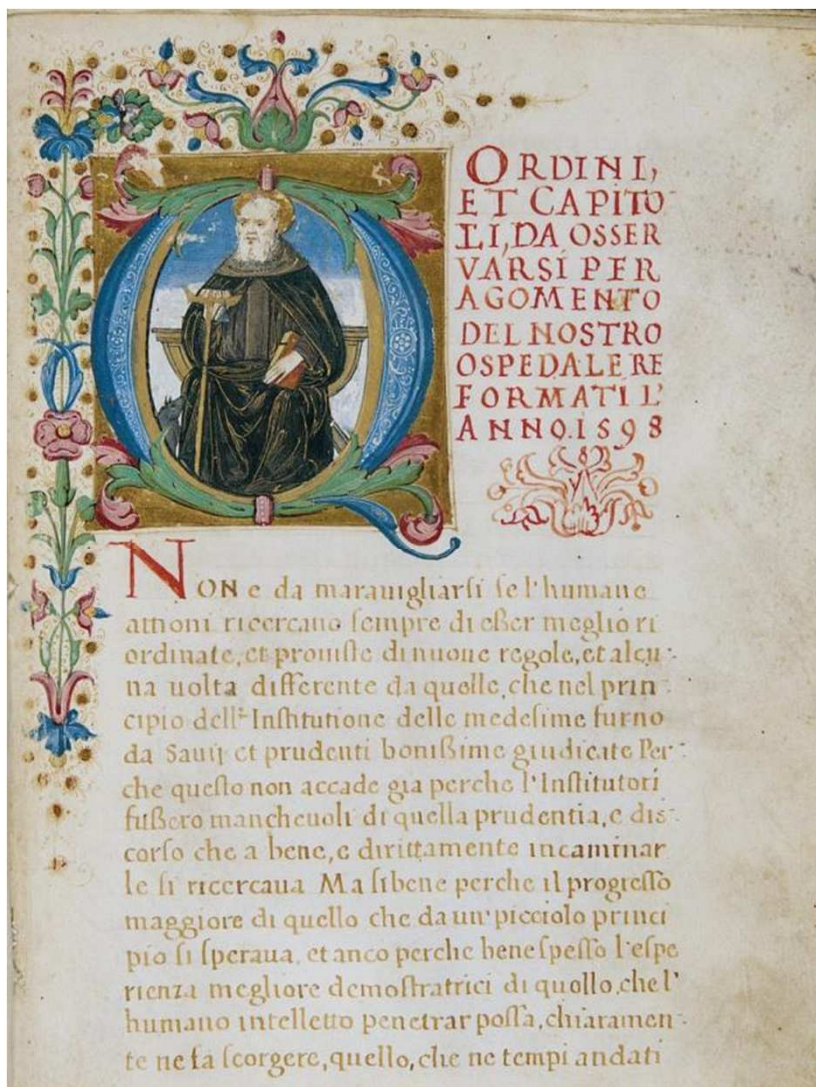 ORDINI,
ET CAPITO
LI, DA OSSER
VARSI PER
AGOMENTO
DEL NOSTRO
OSPEDALE RE
FORMATI L'
ANNO.1598
NON e da marauigliarſi ſe l'humane
attioni ricercano ſempre di eßer meglio ri
ordinate, et prouiſte di nuoue regole, et alcu-
na uolta differente da quelle, che nel prin
cipio dell'Inſtitutione delle medeſime furno
da Sauij et prudenti bonißime giudicate Per-
che queſto non accade gia perche l'Inſtitutori
fußero mancheuoli di quella prudentia, e dis-
corſo che a bene, e dirittamente incaminar
le ſi ricercaua Ma ſibene perche il progreſſo
maggiore di quello che da un' picciolo princi
pio ſi ſperaua, et anco perche bene ſpeſſo l'eſpe
rienza megliore demoſtratrici di quollo, che l'
humano intelletto penetrar poſſa, chiaramen-
te ne fa ſcorgere, quello, che ne tempi andati